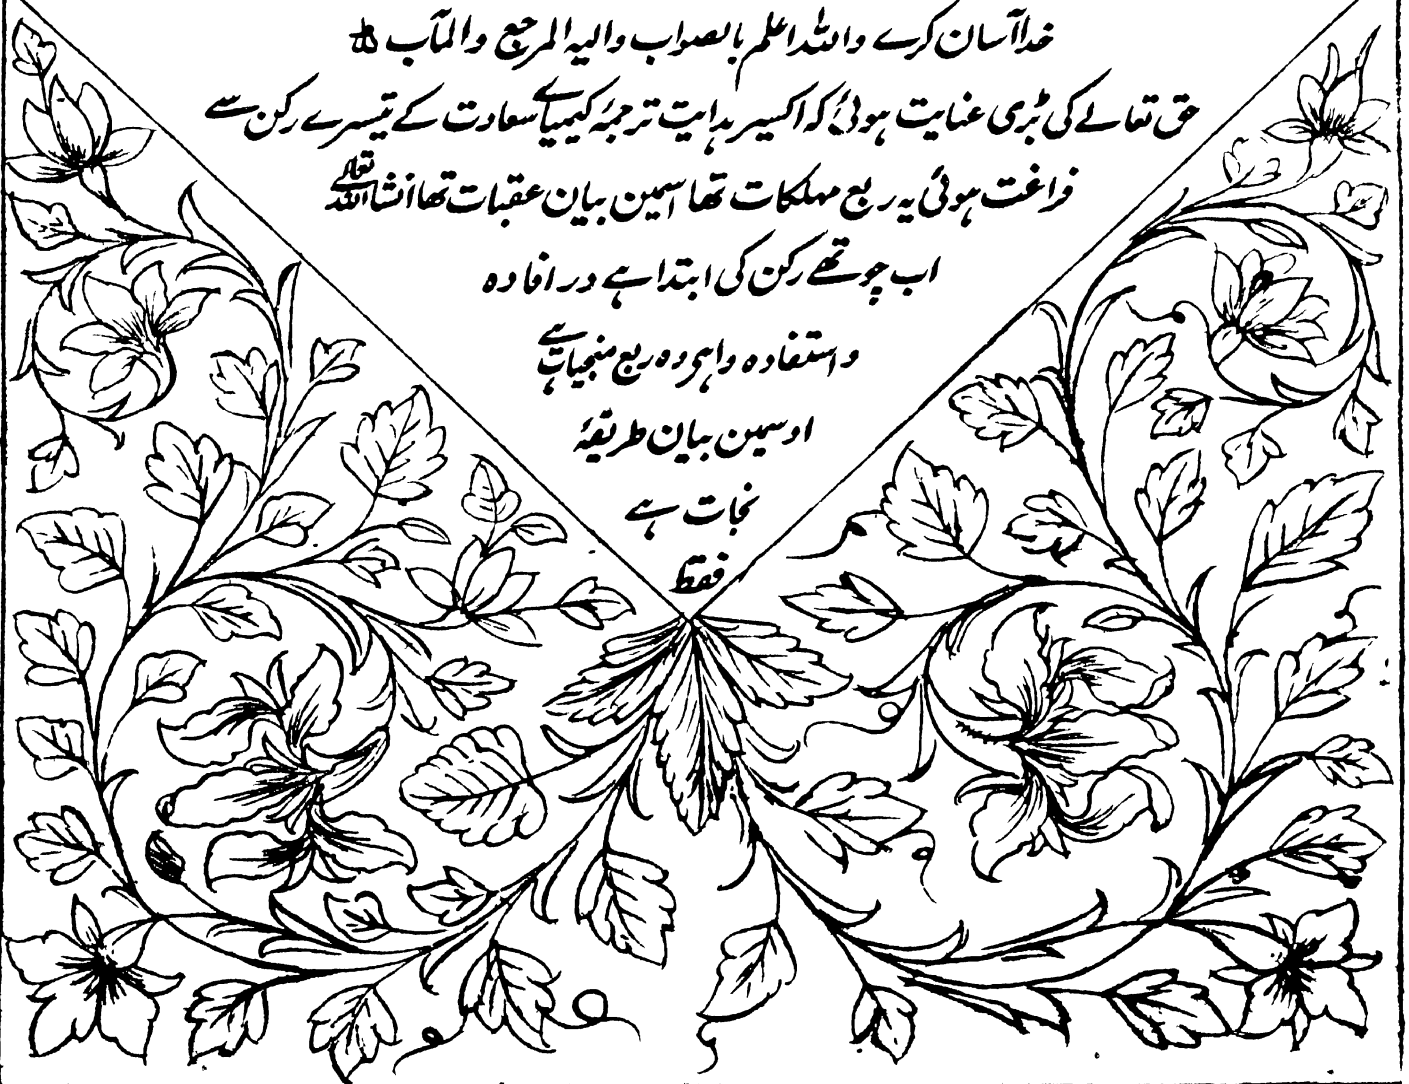 خدا آسان کرے واللہ اعلم بالصواب والیہ المرجع والمآب
حق تعالے کی بڑی عنایت ہوئی کہ اکسیر ہدایت ترجمۂ کیمیاے سعادت کے تیسرے رکن سے
فراغت ہوئی یہ ربع مہلکات تھا اسمین بیان عقبات تھا انشاءاللہ تعالی
اب چوتھے رکن کی ابتدا ہے در افادہ
و استفادہ وا ہی وہ ربع منجیات ہے
اوسمین بیان طریقۂ
نجات ہے
فقط